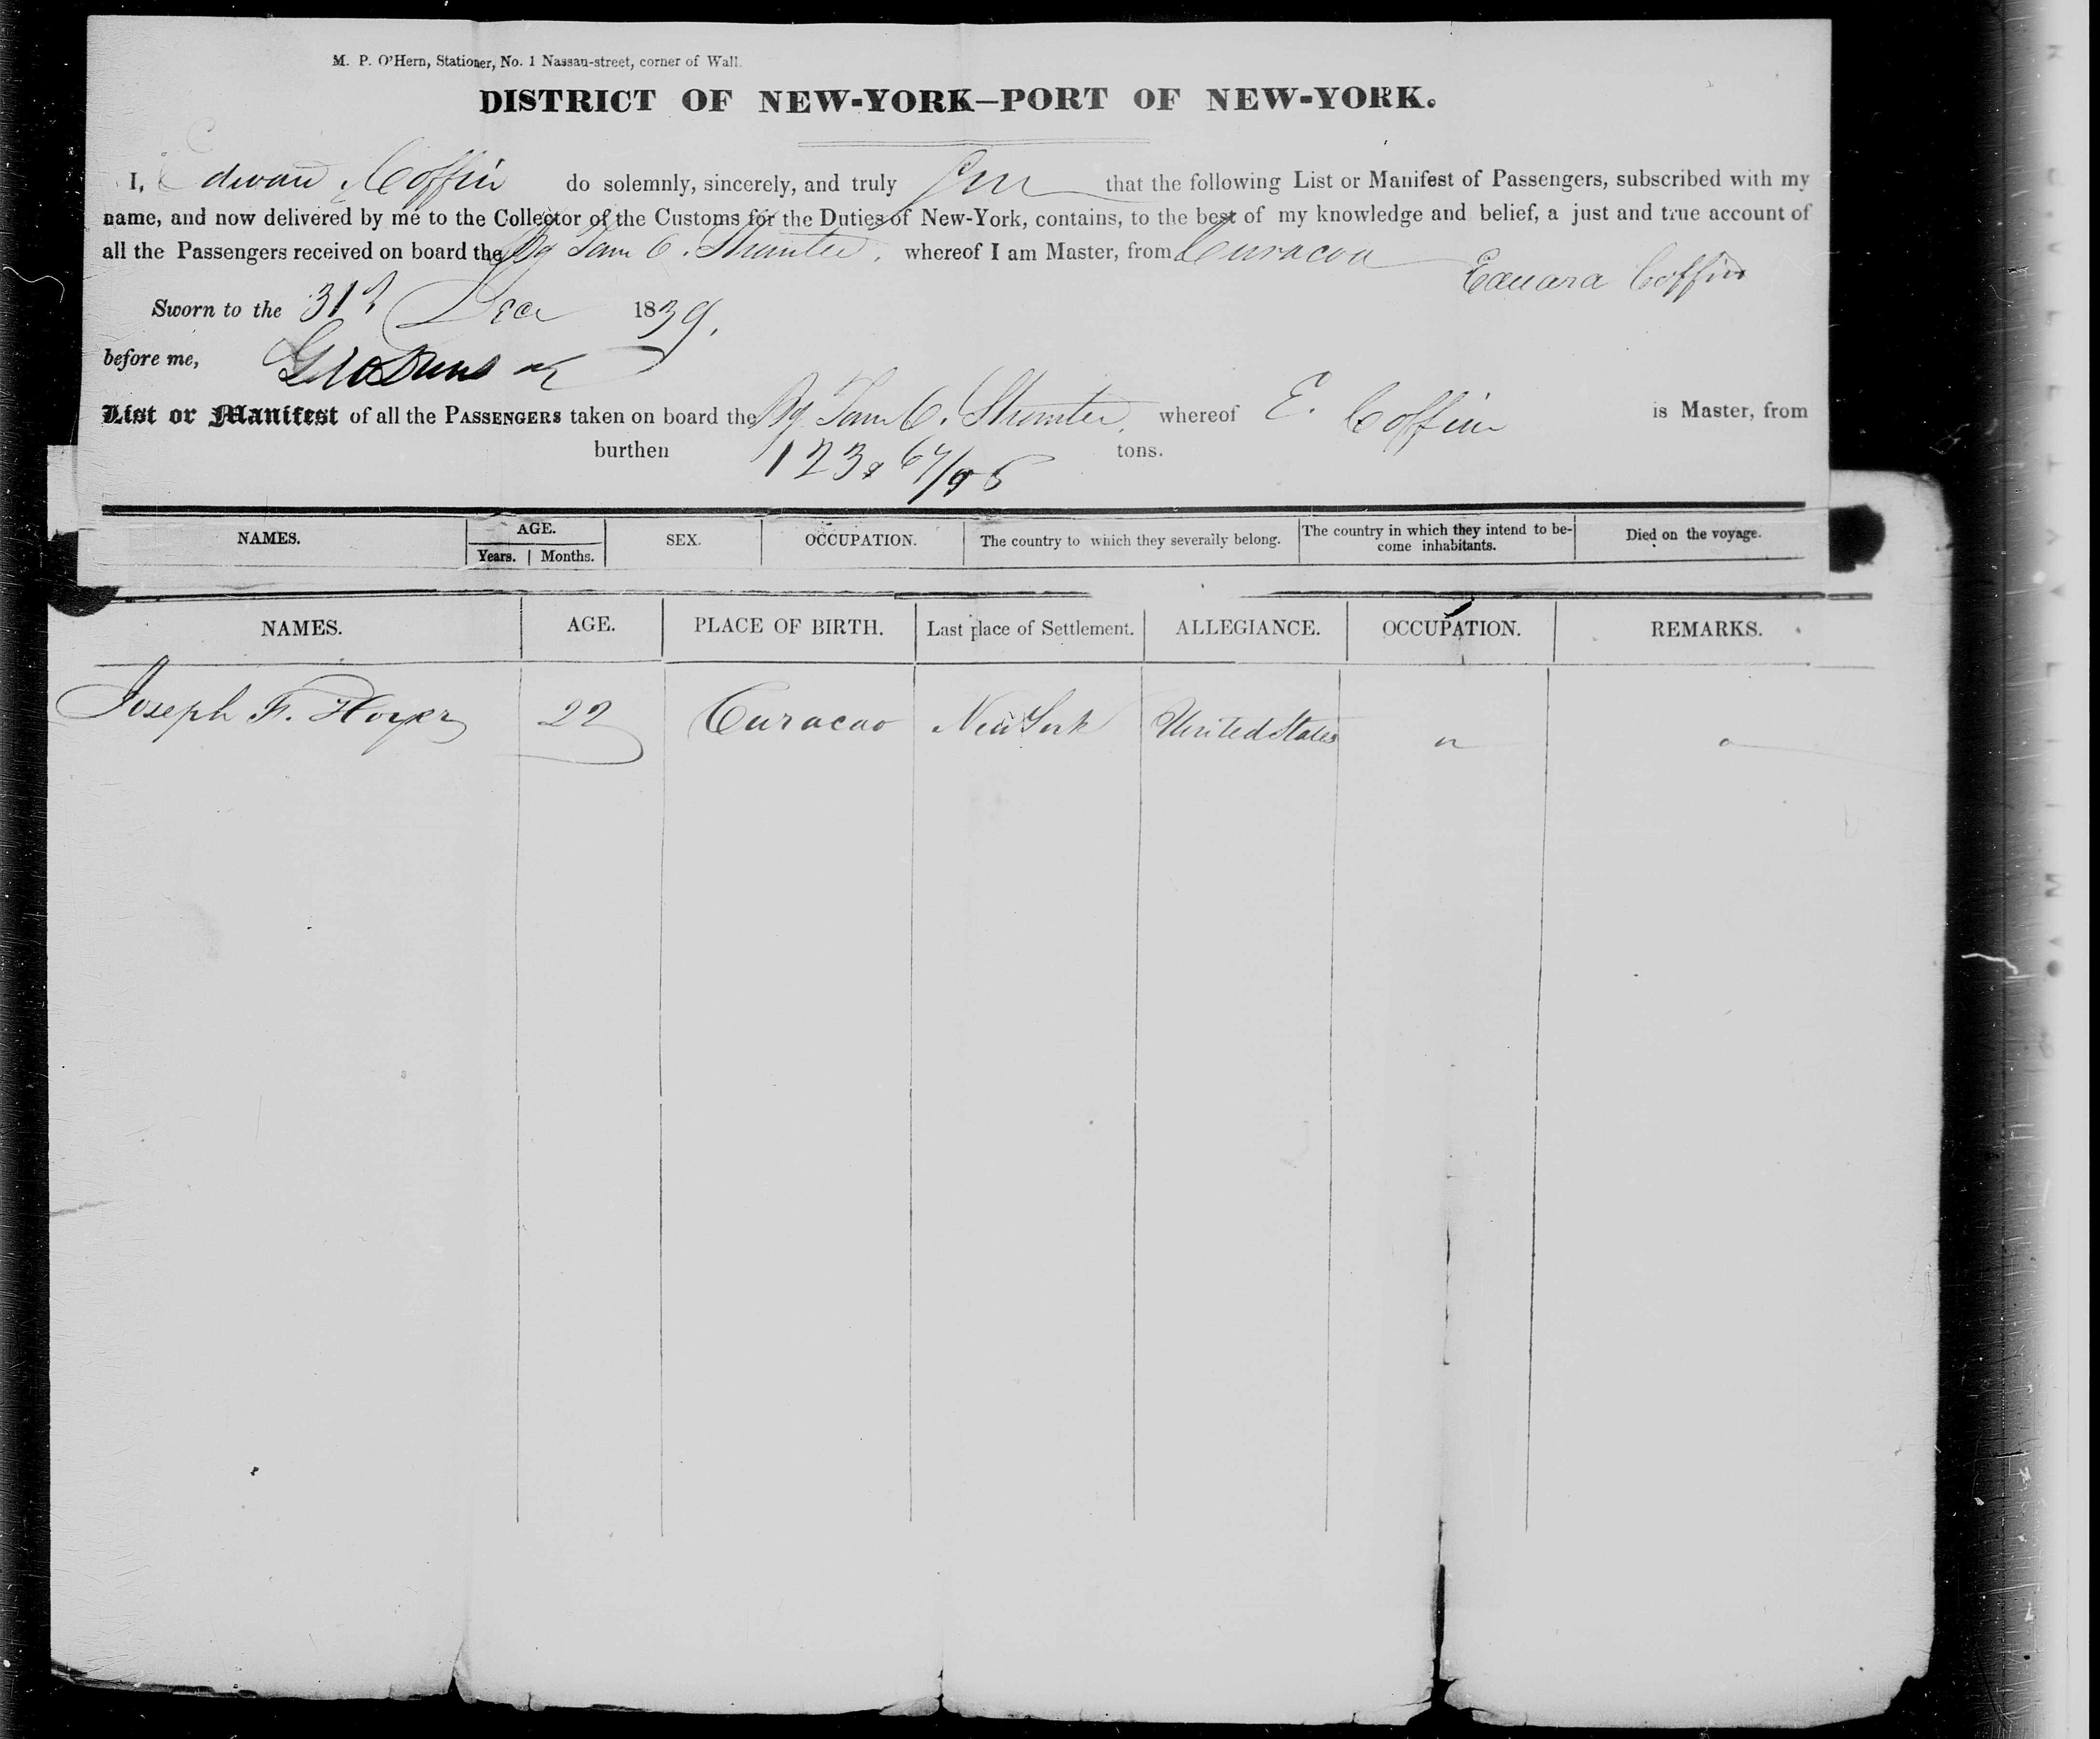 M. P. O'Hern, Stationer, No. 1 Nassau-street, corner of Wall.
DISTRICT OF NEW-YORK—PORT OF NEW-YORK.
I, Edward Coffin do solemnly, sincerely, and truly that the following List or Manifest of Passengers, subscribed with my
name, and now delivered by me to the Collector of the Customs for the Duties of New-York, contains, to the best of my knowledge and belief, a just and true account of
all the Passengers received on board the Bg whereof I am Master, from Curacoa
Edward Coffin
Sworn to the 31st Dec 1839.
before me,
List or Manifest of all the PASSENGERS taken on board the Bg whereof E. Coffin is Master, from
burthen 123 67/95 tons.
NAMES. AGE. SEX. OCCUPATION. The country to which they severally belong. The country in which they intend to be- Died on the voyage.
Years. Months. come inhabitants.
NAMES. AGE. PLACE OF BIRTH. Last place of Settlement. ALLEGIANCE. OCCUPATION. REMARKS.
Joseph F. Hoyer 22 Curacao New York United States